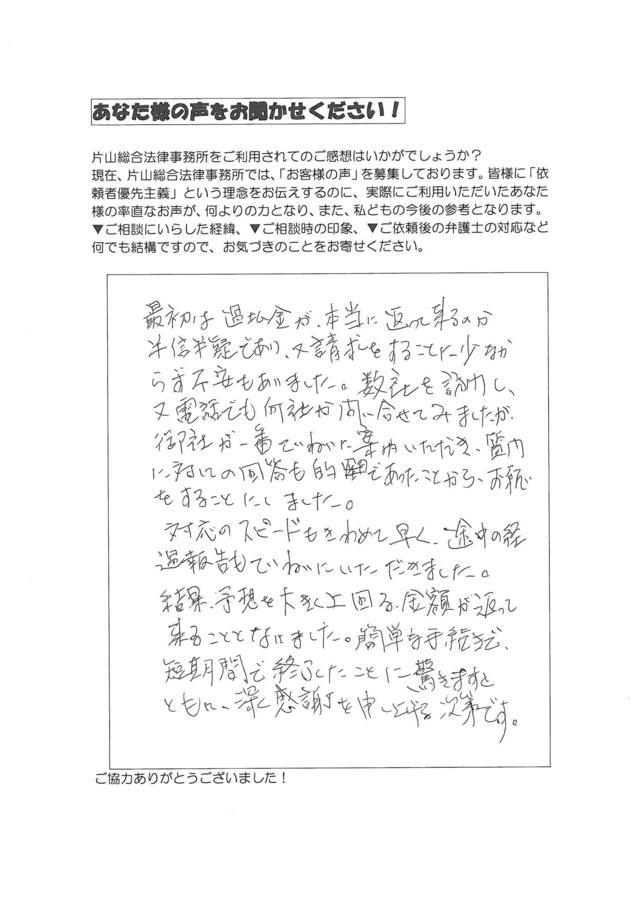 あなた様の声をお聞かせください！
片山総合法律事務所をご利用されてのご感想はいかがでしょうか？
現在、片山総合法律事務所では、「お客様の声」を募集しております。皆様に「依
頼者優先主義」という理念をお伝えするのに、実際にご利用いただいたあなた
様の率直なお声が、何よりの力となり、また、私どもの今後の参考となります。
▼ご相談にいらした経緯、▼ご相談時の印象、▼ご依頼後の弁護士の対応など
何でも結構ですので、お気づきのことをお寄せください。
最初は過払金が、本当に返って来るのか
半信半疑であり、又請求をすることに少なか
らず不安もありました。数社を訪問し、
又電話でも何社か問い合せてみましたが、
御社が一番ていねいに案内いただき、質問
に対しての回答も的確であったことから、お願い
をすることにしました。
対応のスピードもきわめて早く、途中の経
過報告もていねいにいただきました。
結果、予想を大きく上回る、金額が返って
来ることとなりました。簡単な手続きで、
短期間で終了したことに、驚きますと
ともに、深く感謝を申し上げる次第です。
ご協力ありがとうございました！